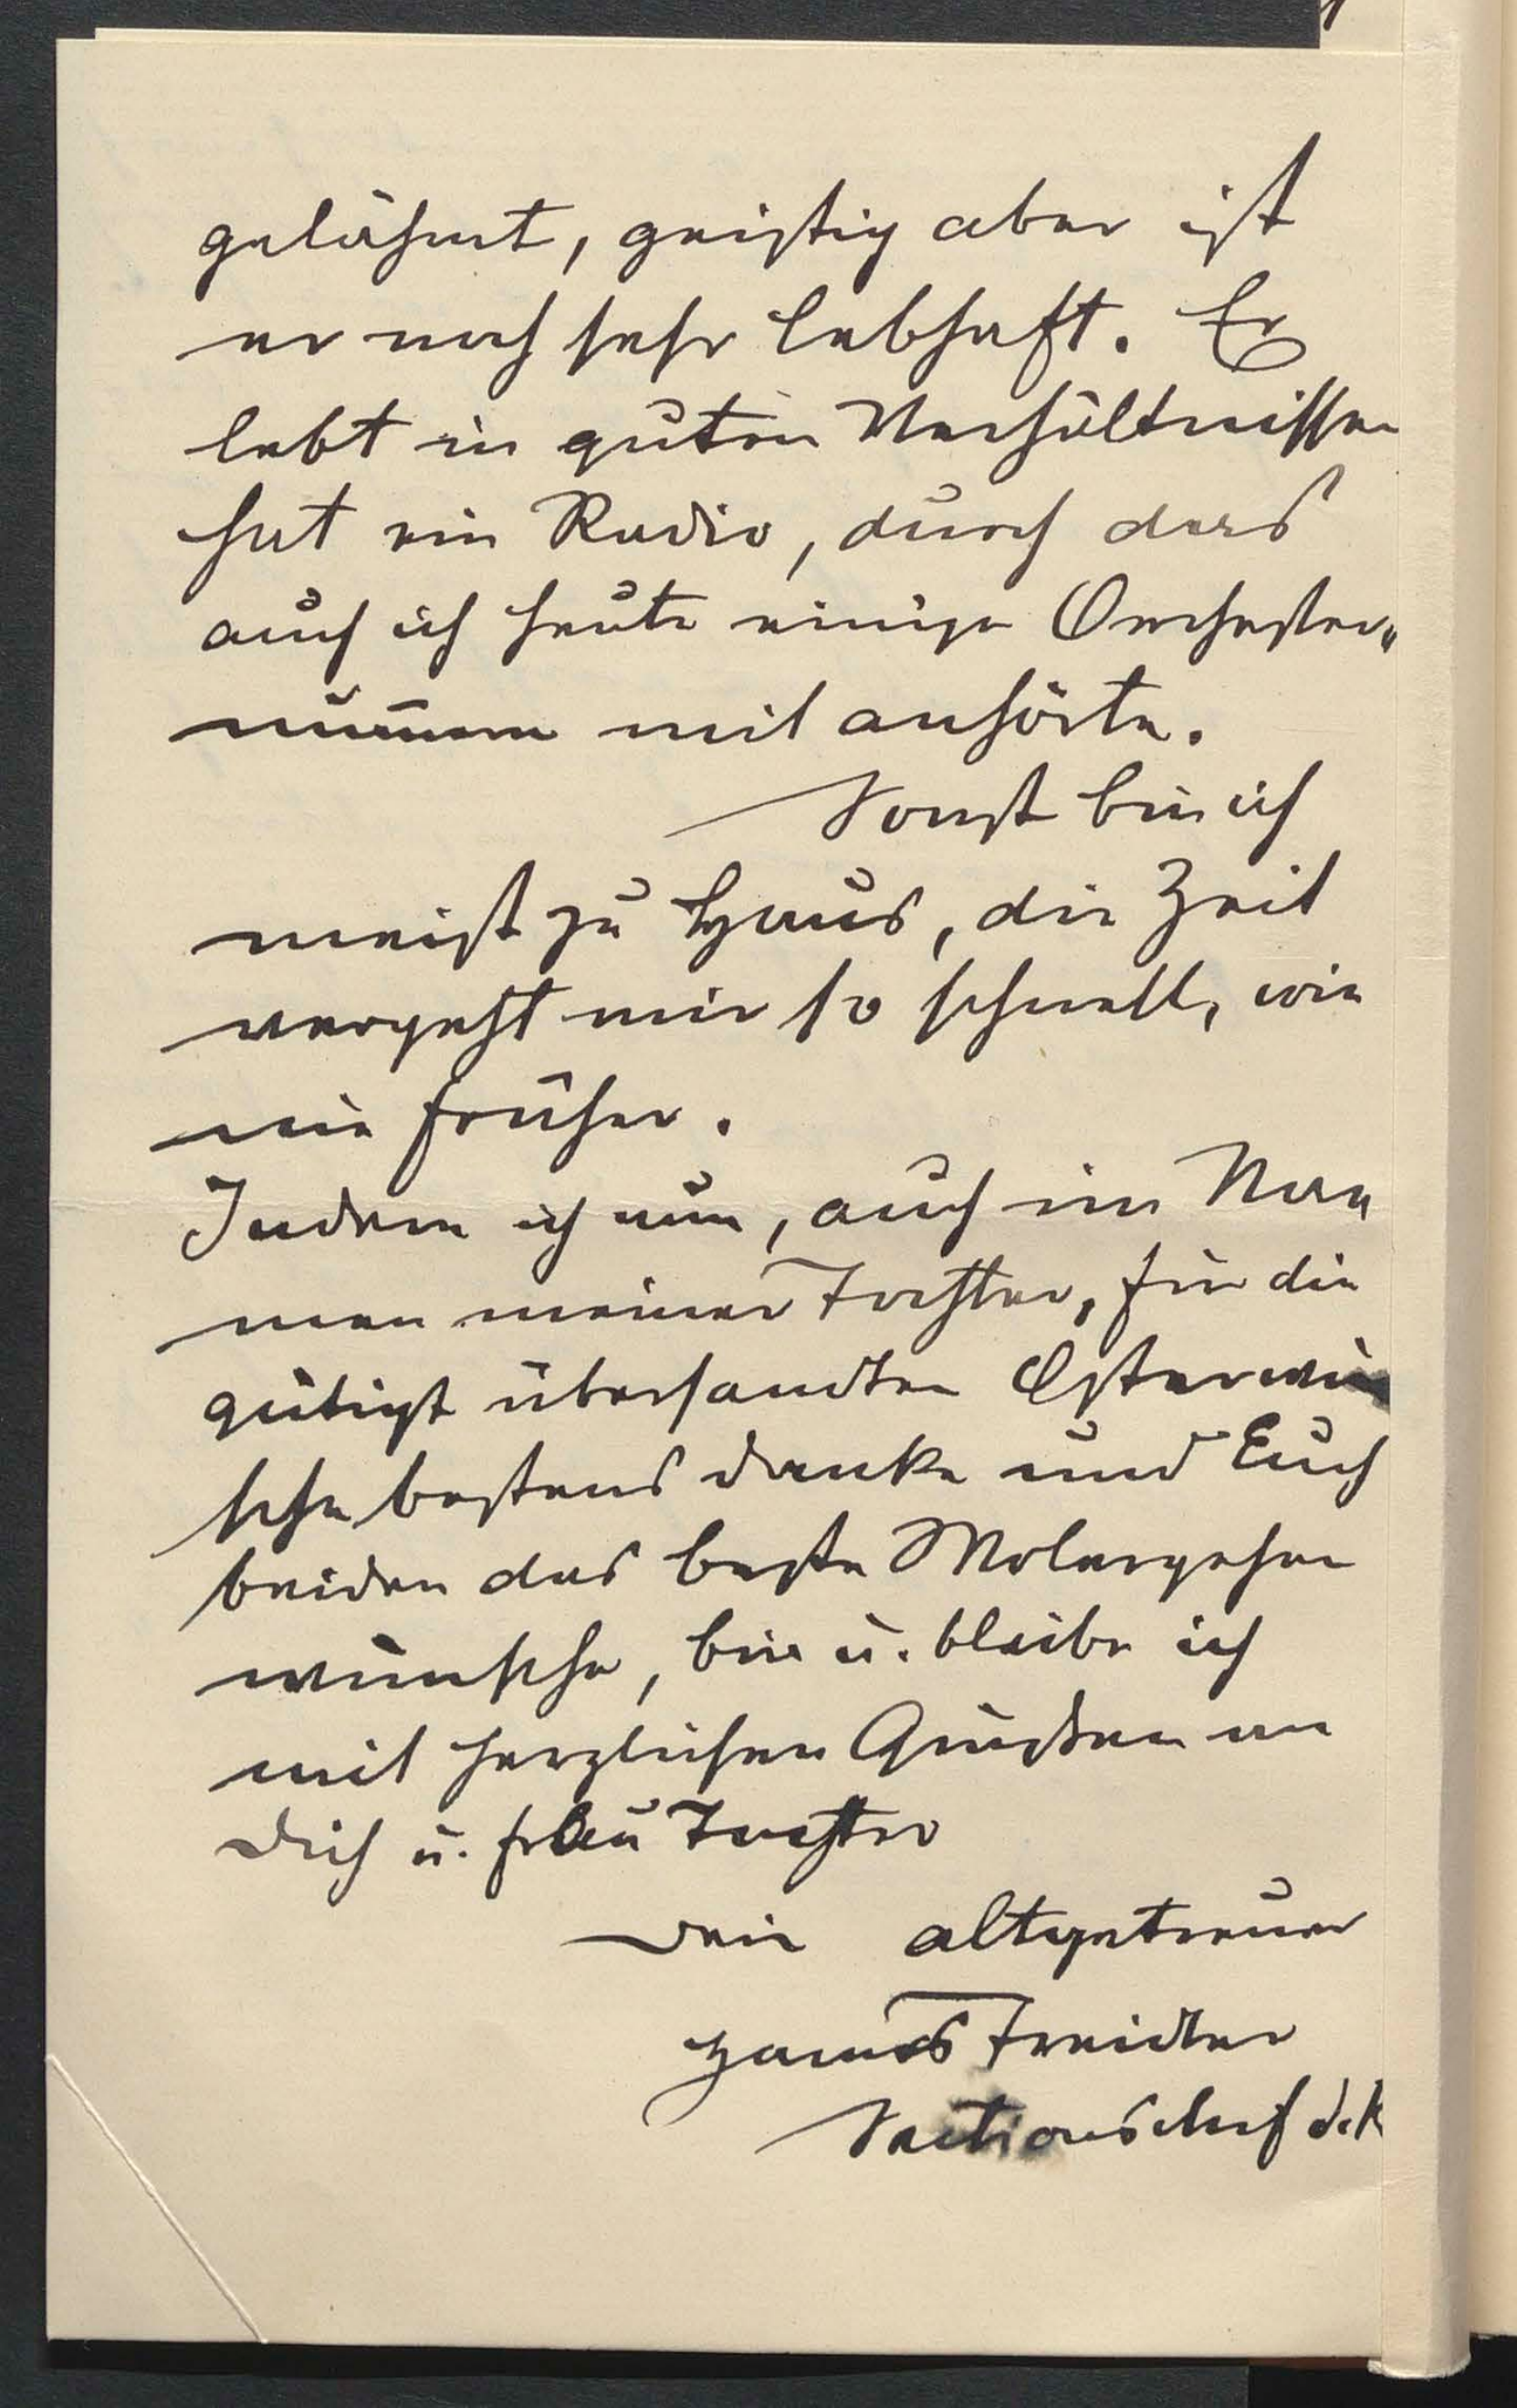 gelähmt, geistig aber ist
er noch sehr lebhaft. Er
lebt in guten Verhältnissen
hat ein Radio, durch das
auch ich heute einige Orchester„
num̅ern mit anhörte.
Sonst bin ich
meist zu Haus, die Zeit
vergeht mir so schnell, wie
nie früher.
Indem ich nun, auch im Na„
men meiner Tochter, für die
gütigst übersandten Osterwün
sche bestens danke und Euch
beiden das beste Wolergehen
wünsche, bin u. bleibe ich
mit herzlichen Grüßen an
Dich u. Frau Tochter
Dein altgetreuer
Sectionschef d. R